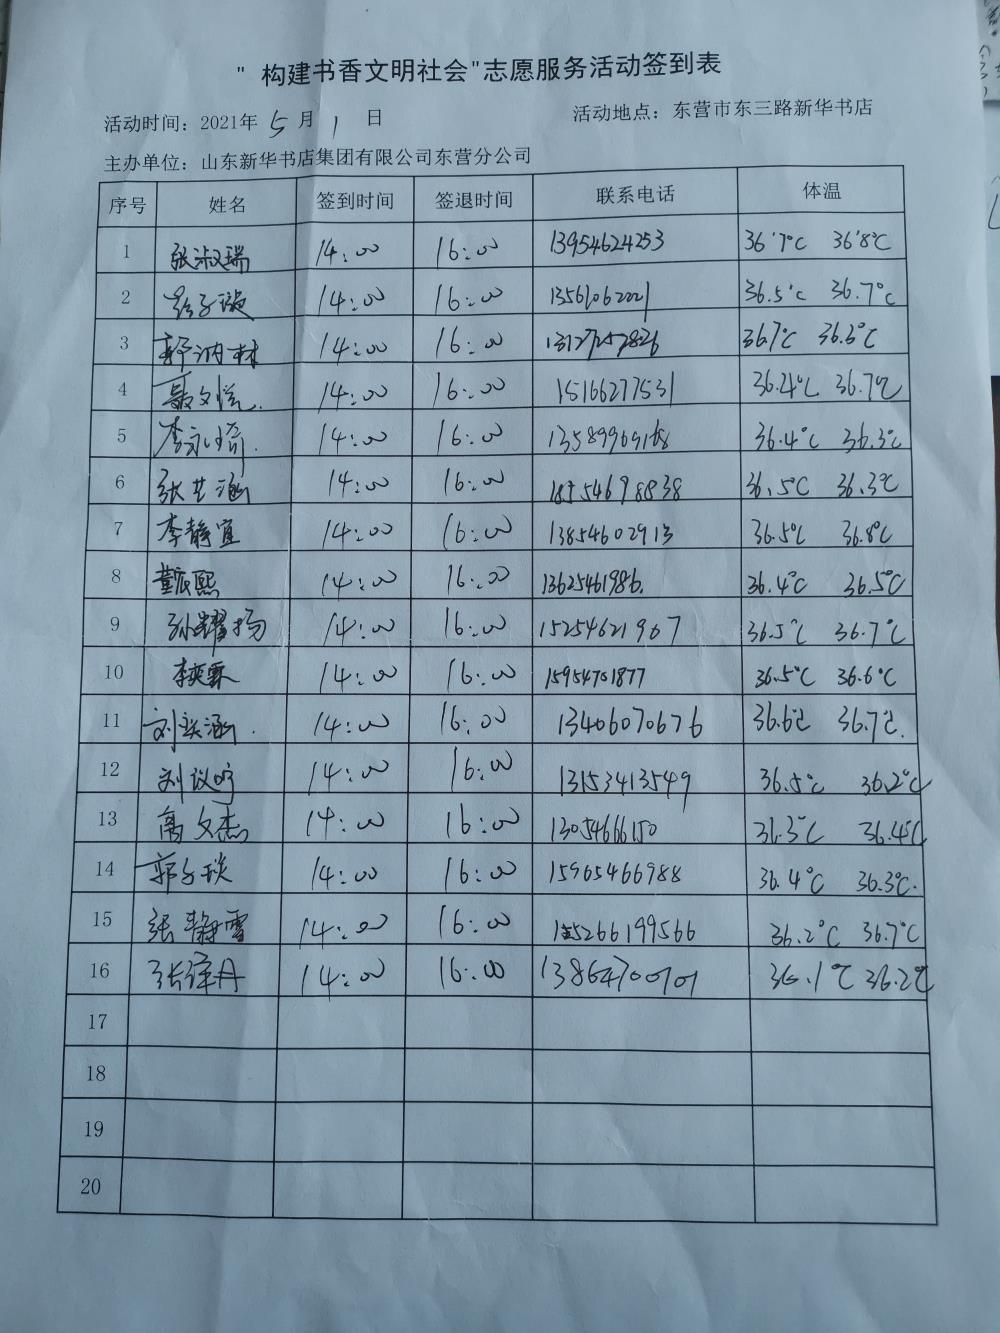 " 构建书香文明社会"志愿服务活动签到表
活动时间：2021年 5 月 1 日 活动地点：东营市东三路新华书店
主办单位：山东新华书店集团有限公司东营分公司
序号 姓名 签到时间 签退时间 联系电话 体温
1 张淑瑞 14:00 16:00 13954624253 36.7℃ 36.8℃
2 14:00 16:00 13561062021 36.5℃ 36.7℃
3 14:00 16:00 36.7℃ 36.6℃
4 聂文悦. 14:00 16:00 15166277531 36.4℃ 36.7℃
5 14:00 16:00 13589969168 36.4℃ 36.3℃
6 张艺涵 14:00 16:00 18554698838 36.5℃ 36.3℃
7 李静宜 14:00 16:00 13854602913 36.5℃ 36.8℃
8 董宸熙 14:00 16:00 13625461986. 36.4℃ 36.5℃
9 孙耀扬 14:00 16:00 15254621967 36.5℃ 36.7℃
10 李奕霖 14:00 16:00 15954701877 36.5℃ 36.6℃
11 14:00 16:00 13406070676 36.6℃ 36.7℃.
12 刘议 14:00 16:00 13153413549 36.5℃ 36.2℃
13 高文杰 14:00 16:00 13054666150 36.3℃ 36.4℃
14 郭子琰 14:00 16:00 15965466988 36.4℃ 36.3℃.
15 张静雪 14:00 16:00 15266199566 36.2℃ 36.7℃
16 张泽丹 14:00 16:00 13864700701 36.1℃ 36.2℃
17
18
19
20